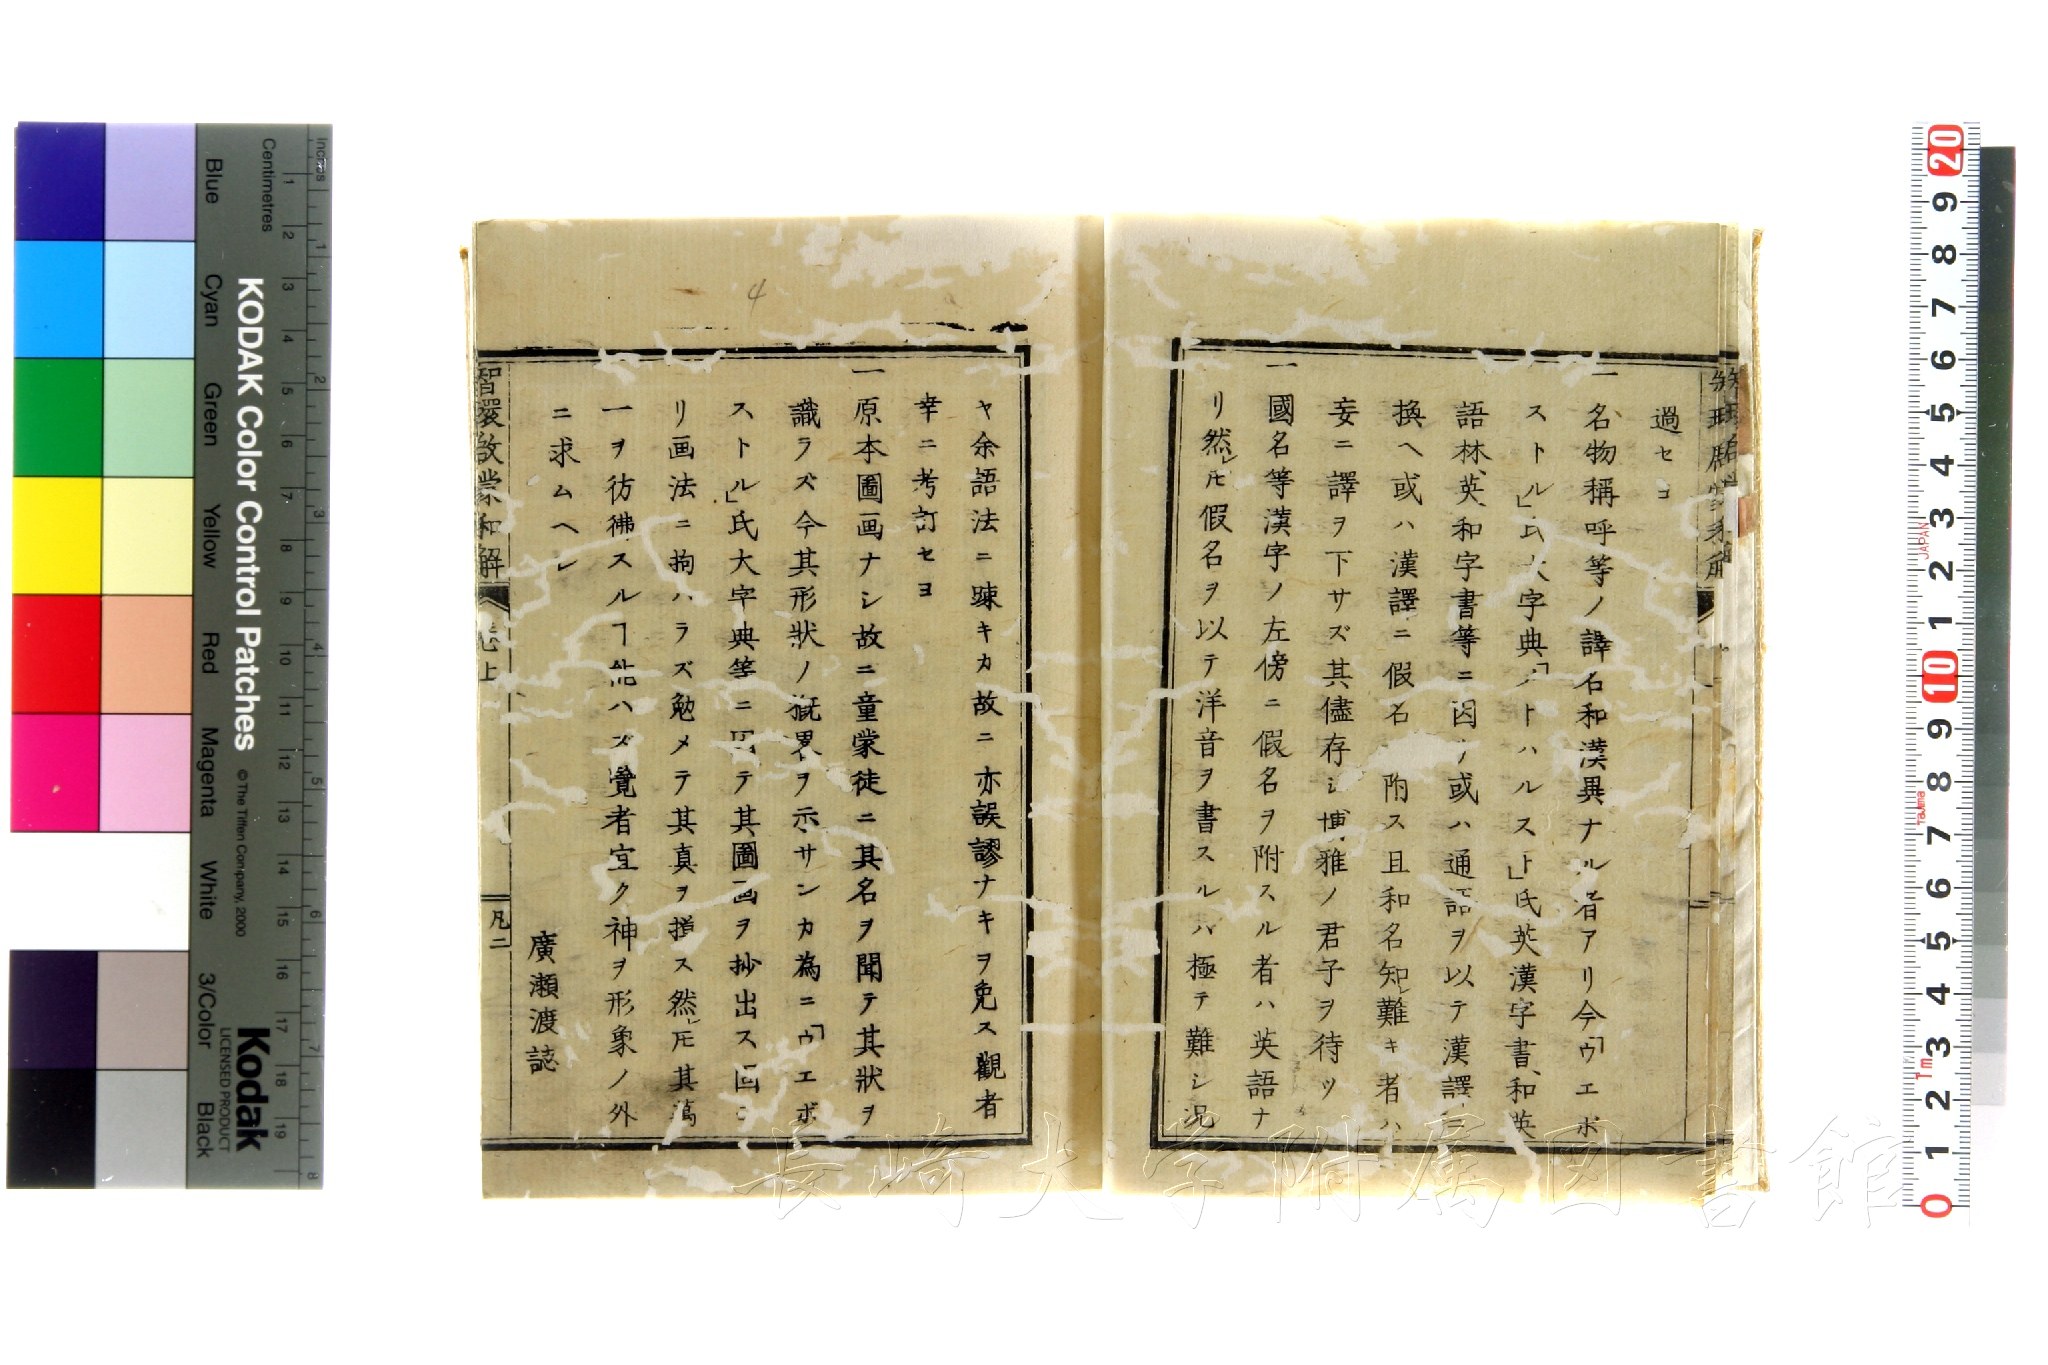 過セ
一名物稱呼等ノ譯名和漢異ナル者アリ今「ウエボ
ストル」氏大字典「トハルスト」氏英漢字書、和英
語林、英和字書等ニ因リ或ハ通語ヲ以テ漢譯ニ
換ヘ或ハ漢譯ニ假名 附ス且和名知レ難キ者ハ
妄ニ譯ヲ下サズ其儘存シ博雅ノ君子ヲ待ツ
一國名等漢字ノ左傍ニ假名ヲ附スル者ハ英語ナ
リ然レ𪜈假名ヲ以テ洋音ヲ書スルハ極テ難シ况
ヤ余語法ニ踈キカ故ニ亦誤謬ナキヲ免ス觀者
幸ニ考訂セヨ
一原本圖画ナシ故ニ童蒙徒ニ其名ヲ聞テ其狀ヲ
識ラズ今其形狀ノ概畧ヲ示サンカ為ニ「ウエボ
ストル」氏大字典等ニ因テ其圖画ヲ抄出ス固ヨ
リ画法ニ拘ハラズ勉メテ其真ヲ指ス然レ𪜈其萬
一ヲ彷彿スルヿ能ハズ覽者宜ク神ヲ形象ノ外
ニ求ムヘシ
廣瀬渡誌
智環啟蒙和解 巻上 凡二
4
長崎大学附属図書館
Inches
Centimetres
Blue Cyan Green Yellow Red Magenta White 3/Color Black
KODAK Color Control Patches © The Tiffen Company, 2000
Kodak
LICENSED PRODUCT
1 2 3 4 5 6 7 8 9 10 11 12 13 14 15 16 17 18 19
1 2 3 4 5 6 7 8
20 9 8 7 6 5 4 3 2 1 10 9 8 7 6 5 4 3 2 1 0
JAPAN
Tajima
Tm